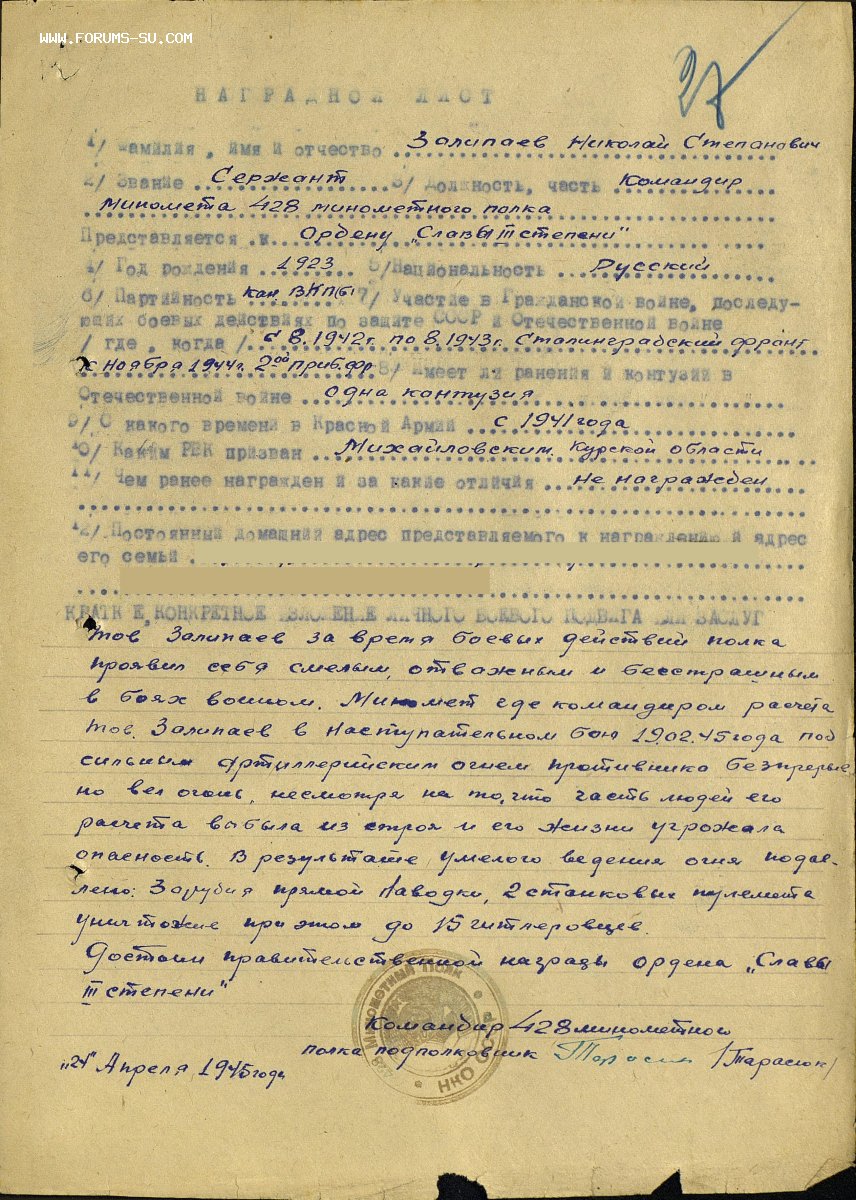 WWW.FORUMS-SU.COM
27
НАГРАДНОЙ ЛИСТ
1/ Фамилия, имя и отчество Залипаев Николай Степанович
2/ Звание Сержант 3/ Должность, часть Командир
Миномета 428 минометного полка
Представляется к Ордену „Славы III степени"
4/ Год рождения 1923 5/ Национальность Русский
6/ Партийность Кан. ВКП(б) 7/ Участие в Гражданской войне, последу-
ющих боевых действиях по защите СССР и Отечественной войне
/ где, когда / с 8.1942г. по 8.1943г. Сталинградский фронт
с Ноября 1944г. 2ой приб. фр. 8/ Имеет ли ранения и контузии в
Отечественной войне одна контузия
9/ С какого времени в Красной Армии с 1941 года
10/ Каким РВК призван Михайловским, Курской области
11/ Чем ранее награжден и за какие отличия Не награжден
12/ Постоянный домашний адрес представляемого к награждению и адрес
его семьи
КРАТКОЕ, КОНКРЕТНОЕ ИЗЛОЖЕНИЕ ЛИЧНОГО БОЕВОГО ПОДВИГА ИЛИ ЗАСЛУГ
Тов Залипаев за время боевых действий полка
проявил себя смелым, отважным и бесстрашным
в боях воином. Миномет где командиром расчета
тов. Залипаев в наступательном бою 19.02.45 года под
сильным артиллерийским огнем противника безпрерыв
но вел огонь, несмотря на то, что часть людей его
расчета выбыла из строя и его жизни угрожала
опасность. В результате умелого ведения огня подав-
лено: 3 орудия прямой наводки, 2 станковых пулемета
уничтожив при этом до 15 гитлеровцев.
Достоин правительственной награды ордена „Славы
III степени"
Командир 428 минометного
полка подполковник Тарасюк /Тарасюк/
„24" Апреля 1945 года
МИНОМЕТНЫЙ ПОЛК
НКО СССР